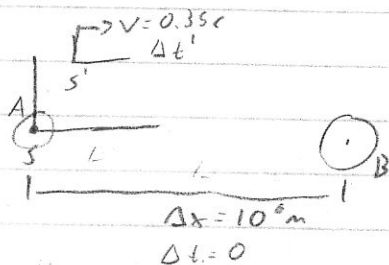 → V = 0.35c
Δt'
S'
A
S
L
L
B
Δx = 10⁶ m
Δt = 0